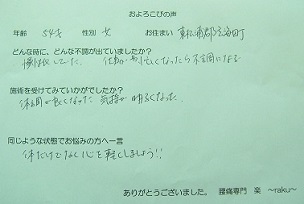 およろこびの声
年齢 54才 性別 女 お住まい 東松浦郡玄海町
どんな時に、どんな不調が出ていましたか?
慢性化していた。 仕事が
不調になる
施術を受けてみていかがでしたか?
体調が良くなった 気持が明るくなった
同じような状態でお悩みの方へ一言
体だけでなく心も軽くしましょう!!
ありがとうございました。 腰痛専門 楽 ~raku~